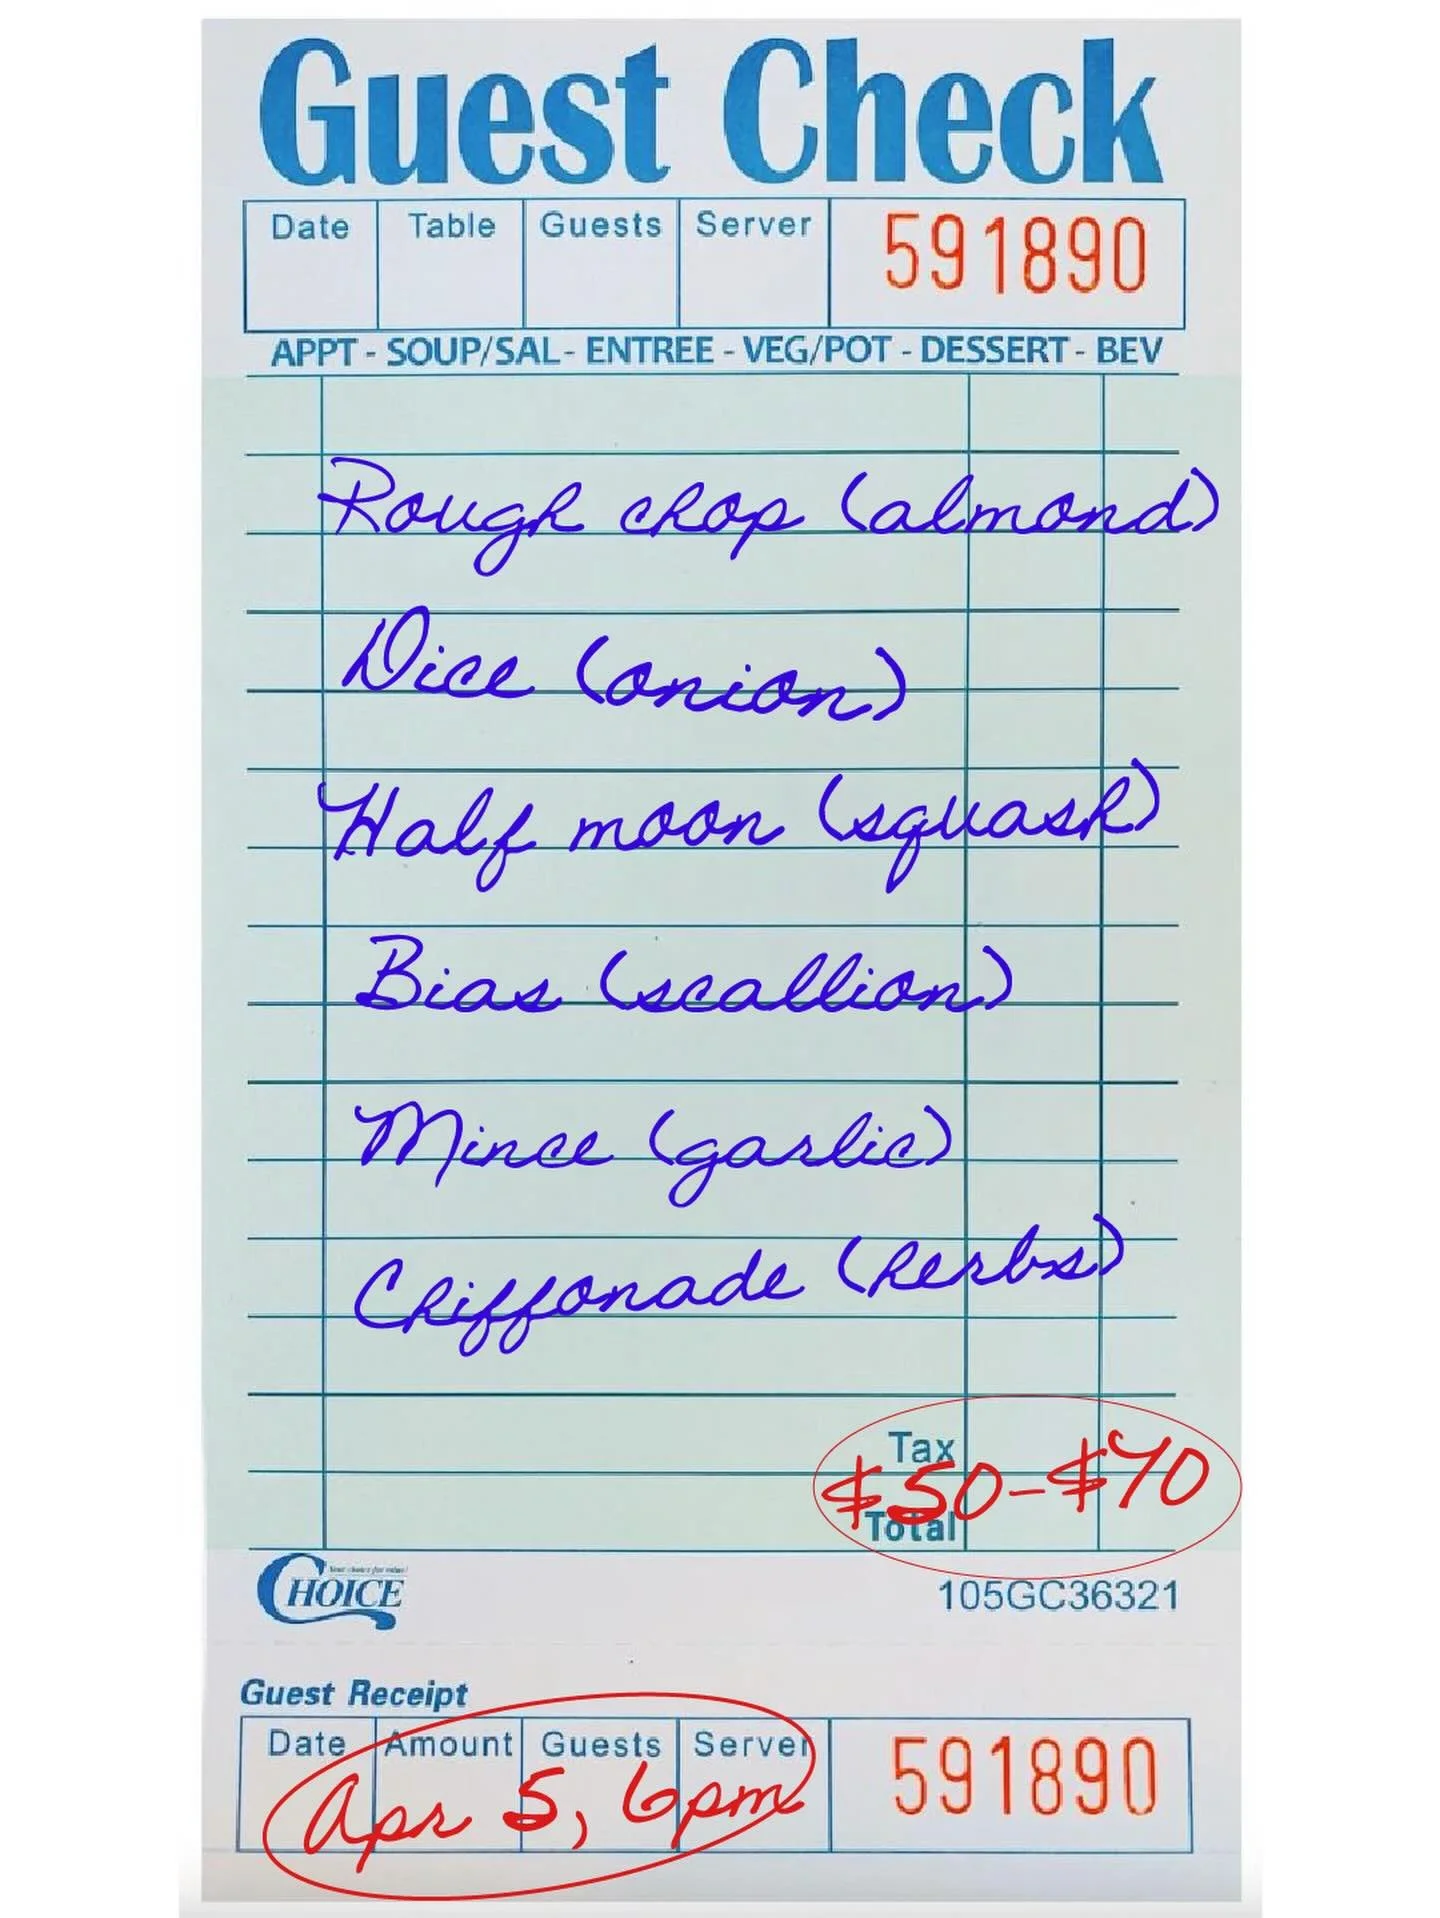 Guest Check
Date Table Guests Server 591890
APPT - SOUP/SAL - ENTREE - VEG/POT - DESSERT - BEV
Rough chop (almond)
Dice (onion)
Half moon (squash)
Bias (scallion)
Mince (garlic)
Chiffonade (herbs)
Tax
$50-$70
Total
Your choice for value!
CHOICE
105GC36321
Guest Receipt
Date Amount Guests Server 591890
Apr 5, 6pm